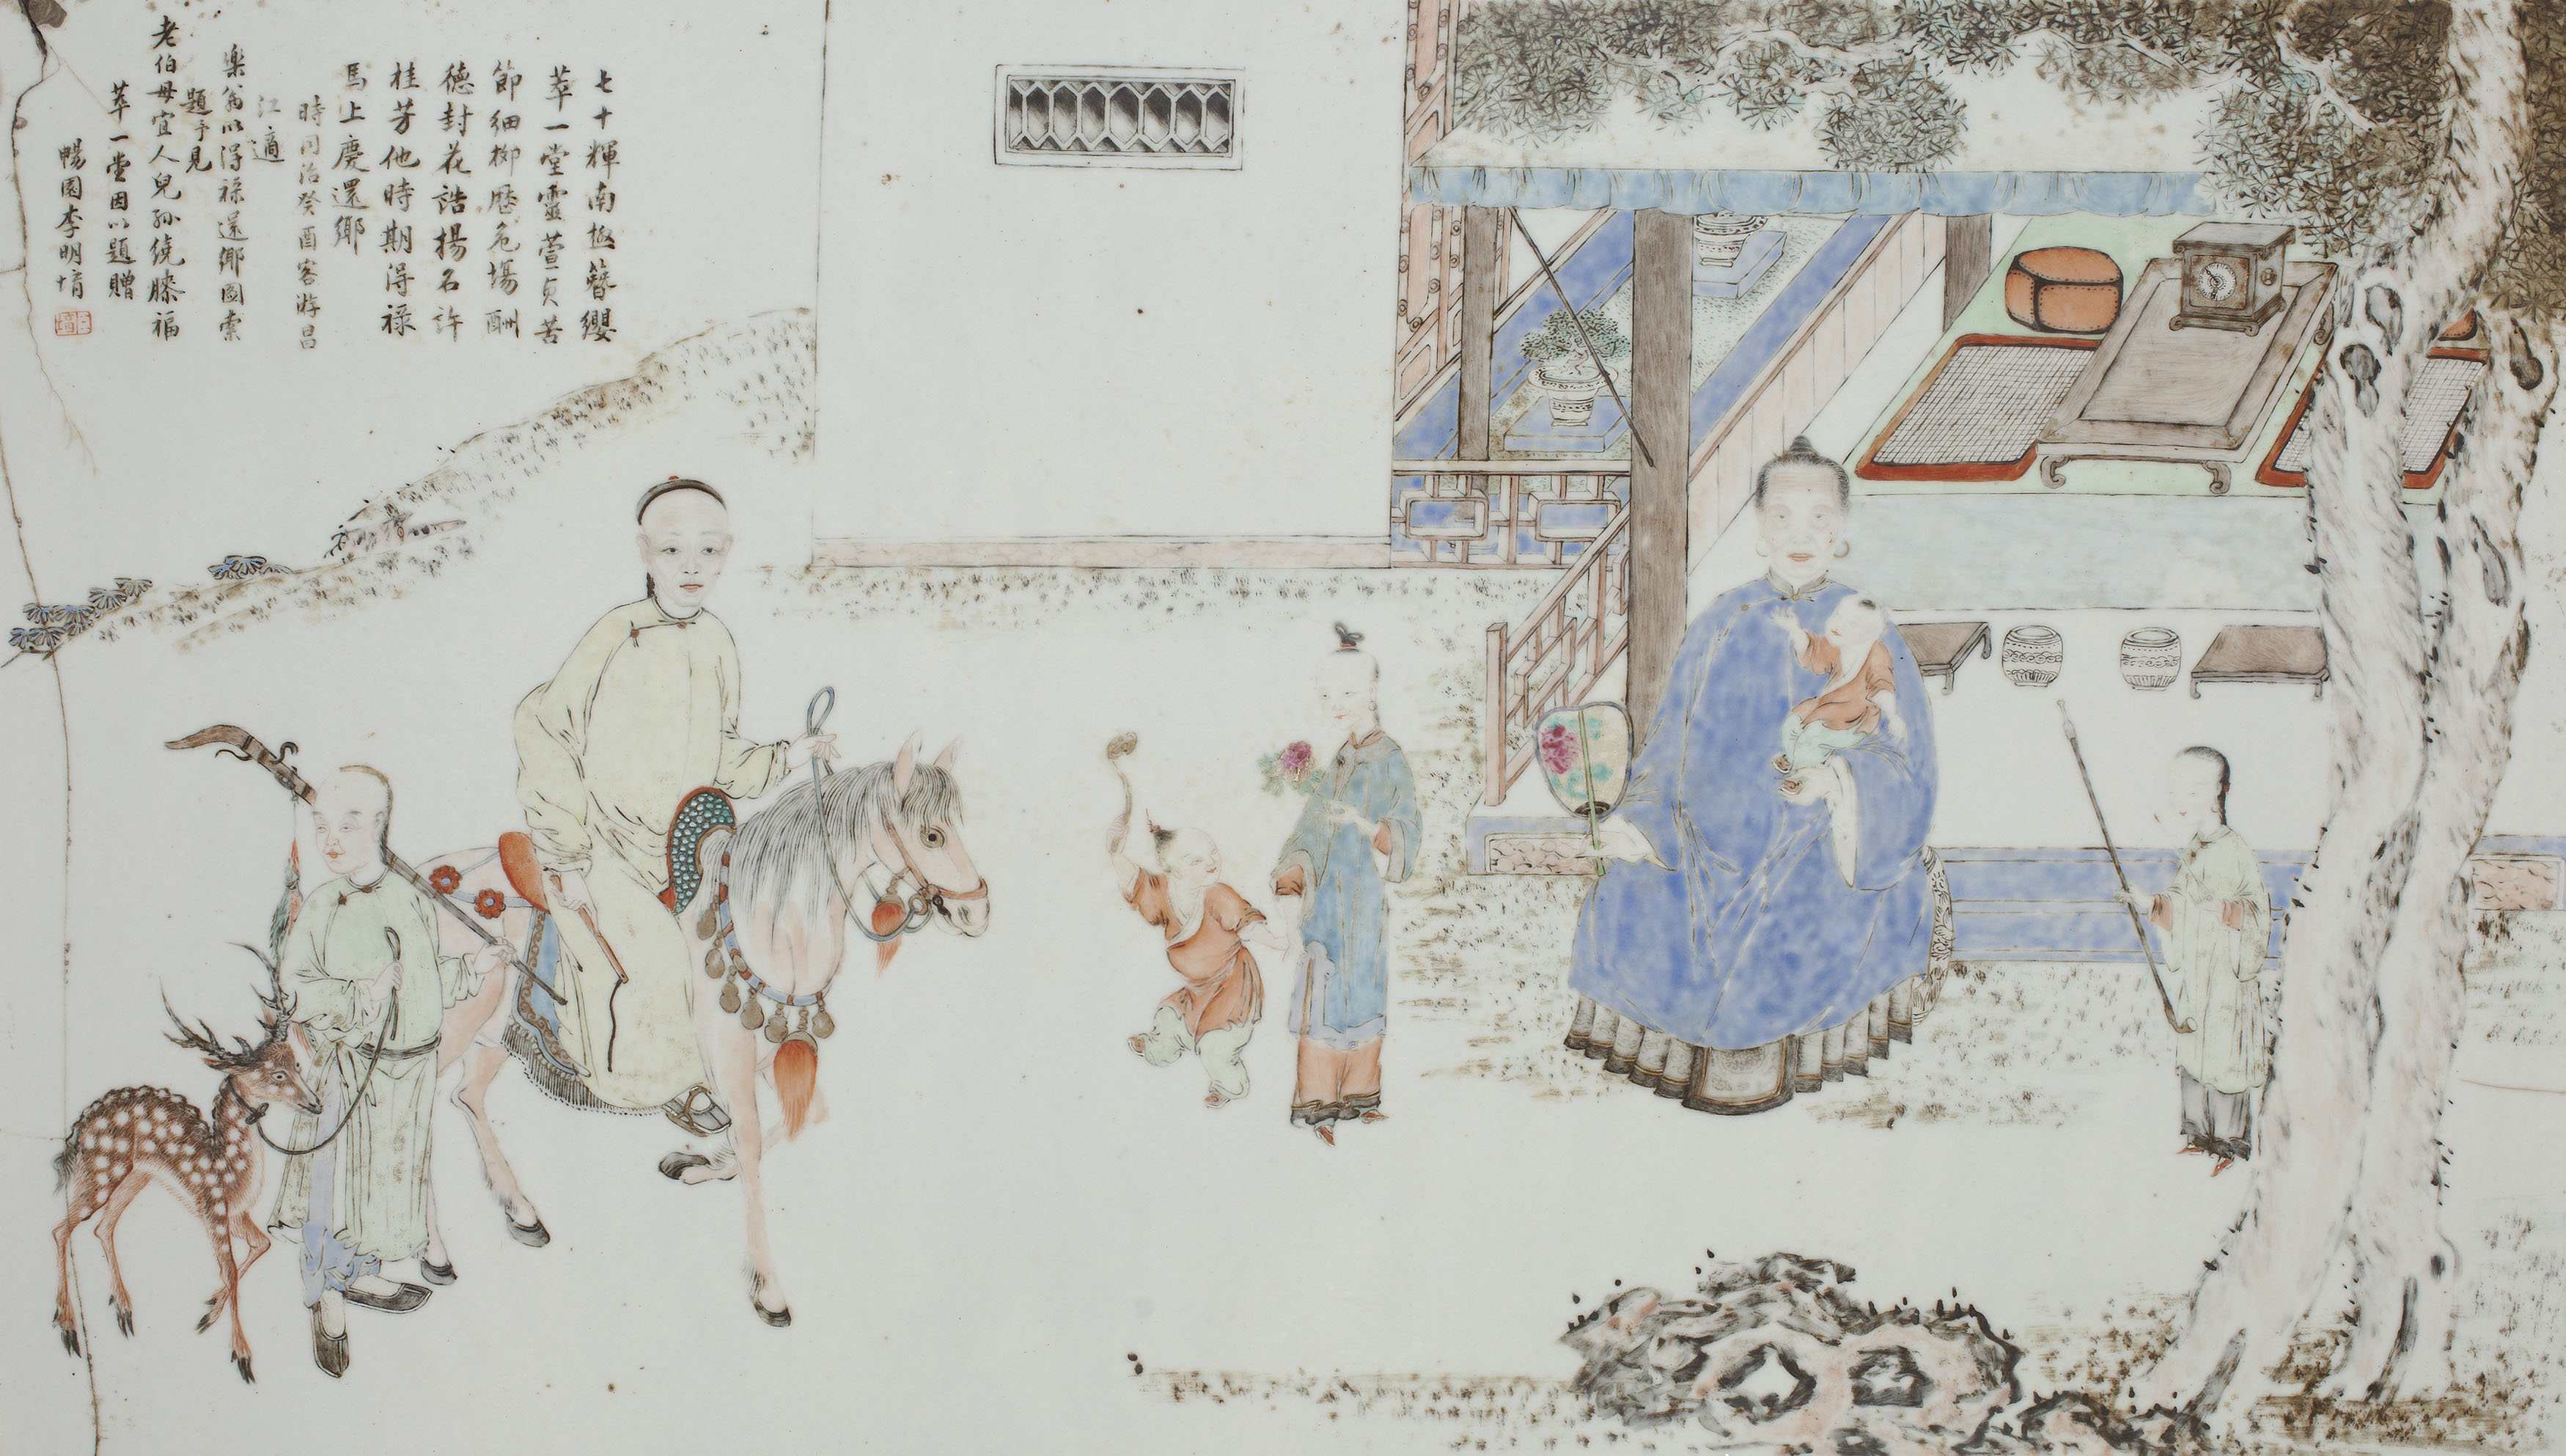 七十輝南極簪纓
萃一堂靈萱貞苦
節細柳歷危場酬
德封花誥揚名許
桂芳他時期得祿
馬上慶還鄉
時同治癸酉客游昌
江適
樂翁以得祿還鄉圖索
題予見
老伯母宜人兒孫繞膝福
萃一堂因以題贈
暢園李明墉